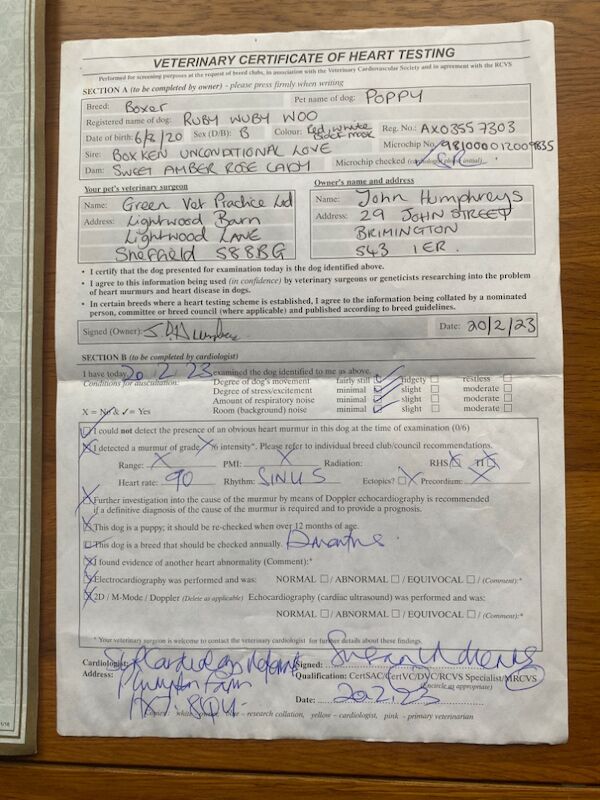 VETERINARY CERTIFICATE OF HEART TESTING
Performed for screening purposes at the request of breed clubs, in association with the Veterinary Cardiovascular Society and in agreement with the RCVS
SECTION A (to be completed by owner) - please press firmly when writing
Breed: Boxer Pet name of dog: POPPY
Registered name of dog: RUBY WUBY WOO
Date of birth: 6/8/20 Sex (D/B): B Colour: Red, white Black mask Reg. No.: AX03557303
Sire: BOXKEN UNCONDITIONAL LOVE Microchip No. 981000012009835
Dam: SWEET AMBER ROSE LADY Microchip checked
Your pet's veterinary surgeon
Name: Green Vet Practice Ltd
Address: Lightwood Barn
Lightwood LANE
Sheffield S88BG
Owner's name and address
Name: John Humphreys
Address: 29 JOHN STREET
BRIMINGTON
S43 1ER.
• I certify that the dog presented for examination today is the dog identified above.
• I agree to this information being used (in confidence) by veterinary surgeons or geneticists researching into the problem
of heart murmurs and heart disease in dogs.
• In certain breeds where a heart testing scheme is established, I agree to the information being collated by a nominated
person, committee or breed council (where applicable) and published according to breed guidelines.
Signed (Owner): Date: 20/2/23
SECTION B (to be completed by cardiologist)
I have today 20 2 23 examined the dog identified to me as above.
Conditions for auscultation: Degree of dog's movement fairly still fidgety restless
Degree of stress/excitement minimal slight moderate
Amount of respiratory noise minimal slight moderate
X = No & ✓ = Yes Room (background) noise minimal slight moderate
I could not detect the presence of an obvious heart murmur in this dog at the time of examination (0/6)
I detected a murmur of grade /6 intensity*. Please refer to individual breed club/council recommendations.
Range: PMI: Radiation: RHS
Heart rate: 90 Rhythm: SINUS Ectopics? Precordium:
Further investigation into the cause of the murmur by means of Doppler echocardiography is recommended
if a definitive diagnosis of the cause of the murmur is required and to provide a prognosis.
This dog is a puppy; it should be re-checked when over 12 months of age.
This dog is a breed that should be checked annually. 12 months.
I found evidence of another heart abnormality (Comment):*
Electrocardiography was performed and was: NORMAL / ABNORMAL / EQUIVOCAL / (Comment):*
2D / M-Mode / Doppler (Delete as applicable) Echocardiography (cardiac ultrasound) was performed and was:
NORMAL / ABNORMAL / EQUIVOCAL / (Comment):*
* Your veterinary surgeon is welcome to contact the veterinary cardiologist for further details about these findings.
Cardiologist: Signed:
Address: Qualification: CertSAC/CertVC/DVC/RCVS Specialist/MRCVS
(encircle as appropriate)
Date: 20.2.23
- research collation, yellow - cardiologist, pink - primary veterinarian